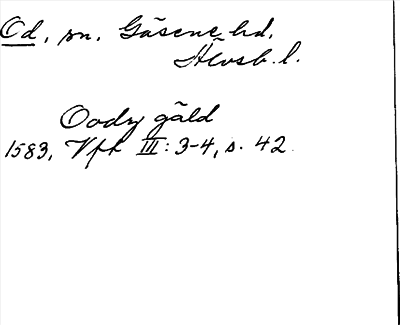 Od, sn. Gäsene hd.
Älvsb. l.
Oody gäld
1583, Vfh III: 3-4, s. 42